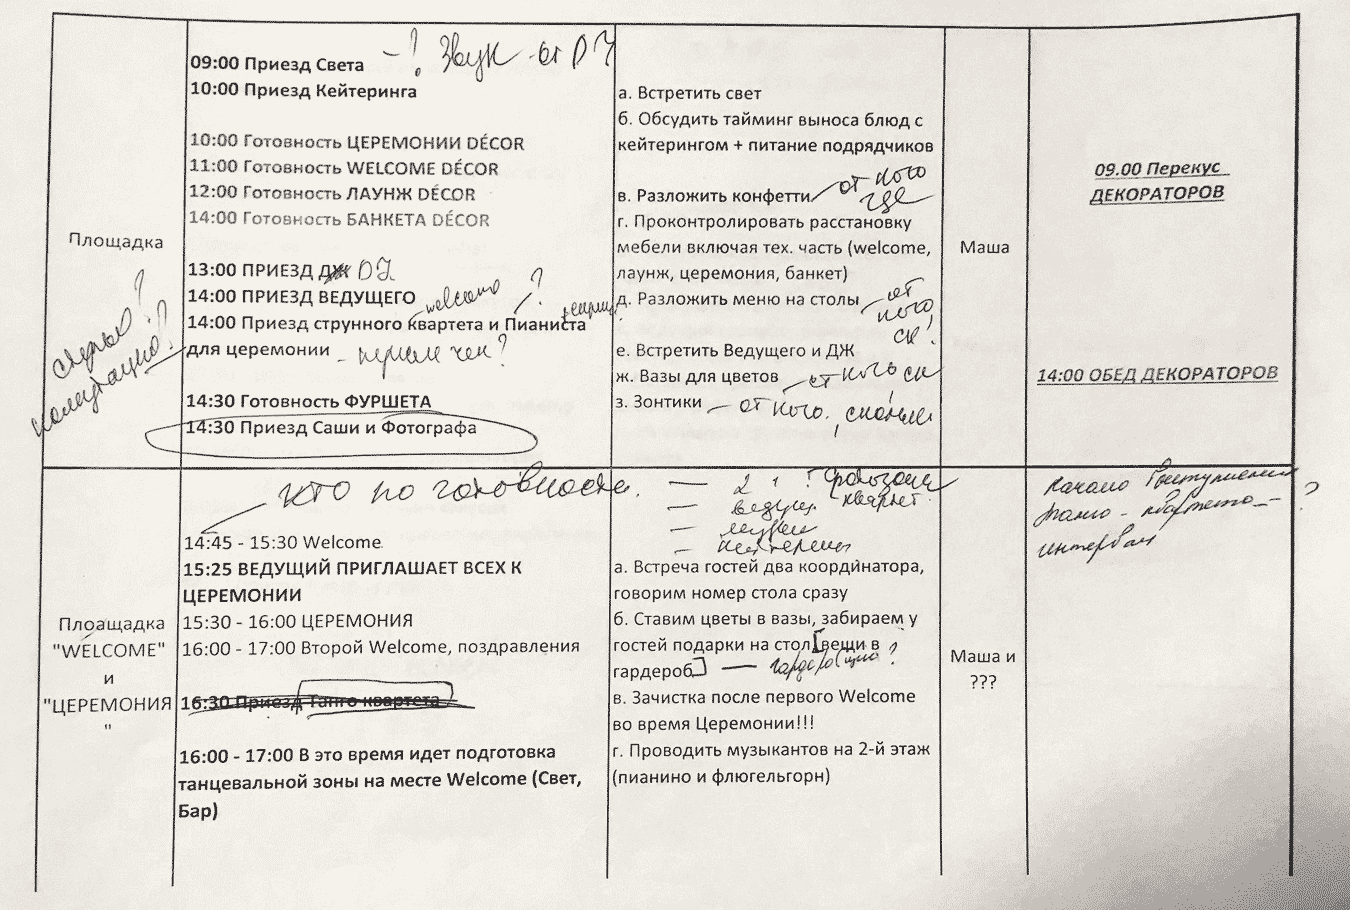 09:00 Приезд Света - ? Звук от DJ
10:00 Приезд Кейтеринга
10:00 Готовность ЦЕРЕМОНИИ DÉCOR
11:00 Готовность WELCOME DÉCOR
12:00 Готовность ЛАУНЖ DÉCOR
14:00 Готовность БАНКЕТА DÉCOR
Площадка
13:00 ПРИЕЗД ДЖ DJ
14:00 ПРИЕЗД ВЕДУЩЕГО
welcome ?
14:00 Приезд струнного квартета и Пианиста
для церемонии
14:30 Готовность ФУРШЕТА
14:30 Приезд Саши и Фотографа
а. Встретить свет
б. Обсудить тайминг выноса блюд с
кейтерингом + питание подрядчиков
в. Разложить конфетти от кого
где
г. Проконтролировать расстановку
мебели включая тех. часть (welcome,
лаунж, церемония, банкет)
д. Разложить меню на столы от
кого
ск!
е. Встретить Ведущего и ДЖ
ж. Вазы для цветов от кого ск
з. Зонтики от кого, сколько
Маша
09.00 Перекус
ДЕКОРАТОРОВ
14:00 ОБЕД ДЕКОРАТОРОВ
кто по готовности.
14:45 - 15:30 Welcome
15:25 ВЕДУЩИЙ ПРИГЛАШАЕТ ВСЕХ К
ЦЕРЕМОНИИ
15:30 - 16:00 ЦЕРЕМОНИЯ
16:00 - 17:00 Второй Welcome, поздравления
16:30 Приезд Танго квартета
16:00 - 17:00 В это время идет подготовка
танцевальной зоны на месте Welcome (Свет,
Бар)
Плоащадка
"WELCOME"
и
"ЦЕРЕМОНИЯ
"
квартет
а. Встреча гостей два координатора,
говорим номер стола сразу
б. Ставим цветы в вазы, забираем у
гостей подарки на стол [вещи в
гардероб] - гардеробщик?
в. Зачистка после первого Welcome
во время Церемонии!!!
г. Проводить музыкантов на 2-й этаж
(пианино и флюгельгорн)
Маша и
???
Начало Выступления
танго - квартета - ?
интервал